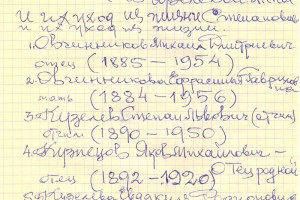 И их уход из жизни Степановне
и их уход из жизни.
1. Овчинников Михаил Дмитриевич
отец (1885 – 1954)
2. Овчинникова Ефросинья
мать (1884 – 1956)
3. Кузелев Степан Львович (отчим)
отчим (1890 – 1950)
4. Кузнецов Яков Михайлович –
отец (1892 – 1920) Отец родной
5. Кузелева Евдокия